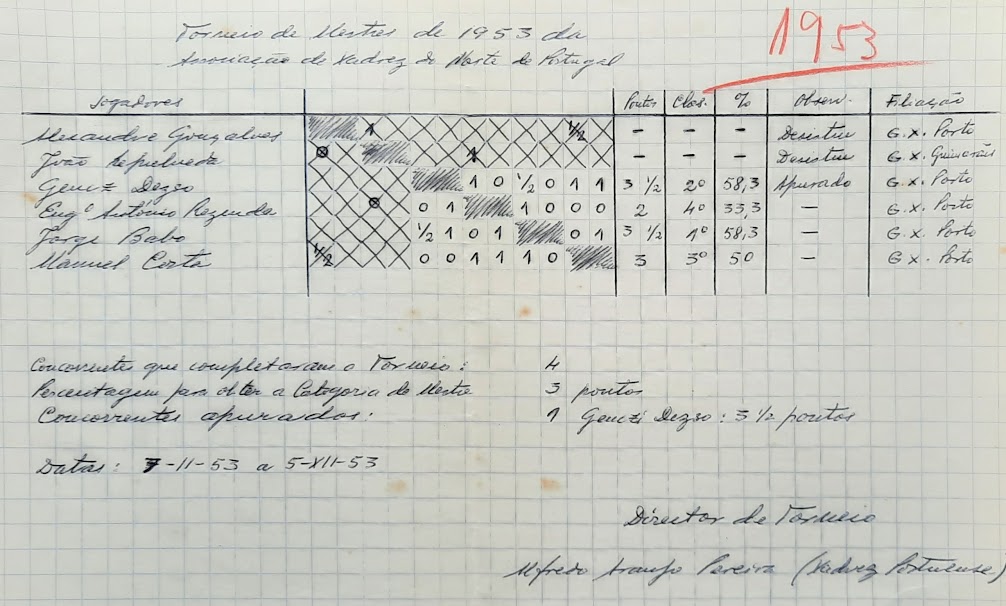 Torneio de Mestres de 1953 da
Associação de Xadrez do Norte de Portugal
1953
Jogadores Pontos Clas. % Observ. Filiação
Alexandre Gonçalves 1 1/2 - - - Desistiu G. X. Porto
João Sepulveda 0 1 - - - Desistiu G. X. Guimarãis
Genczi Dezso 1 0 1/2 0 1 1 3 1/2 2º 58,3 Apurado G. X. Porto
Engº António Rezende 0 0 1 1 0 0 0 2 4º 33,3 — G. X. Porto
Jorge Babo 1/2 1 0 1 0 1 3 1/2 1º 58,3 — G. X. Porto
Manuel Costa 1/2 0 0 1 1 1 0 3 3º 50 — G. X. Porto
Concorrentes que completaram o Torneio: 4
Percentagem para obter a Categoria de Mestre 3 pontos
Concorrentes apurados: 1 Genczi Dezso: 3 1/2 pontos
Datas: 7-11-53 a 5-XII-53
Director de Torneio
Alfredo Araujo Pereira (Xadrez Portuense)